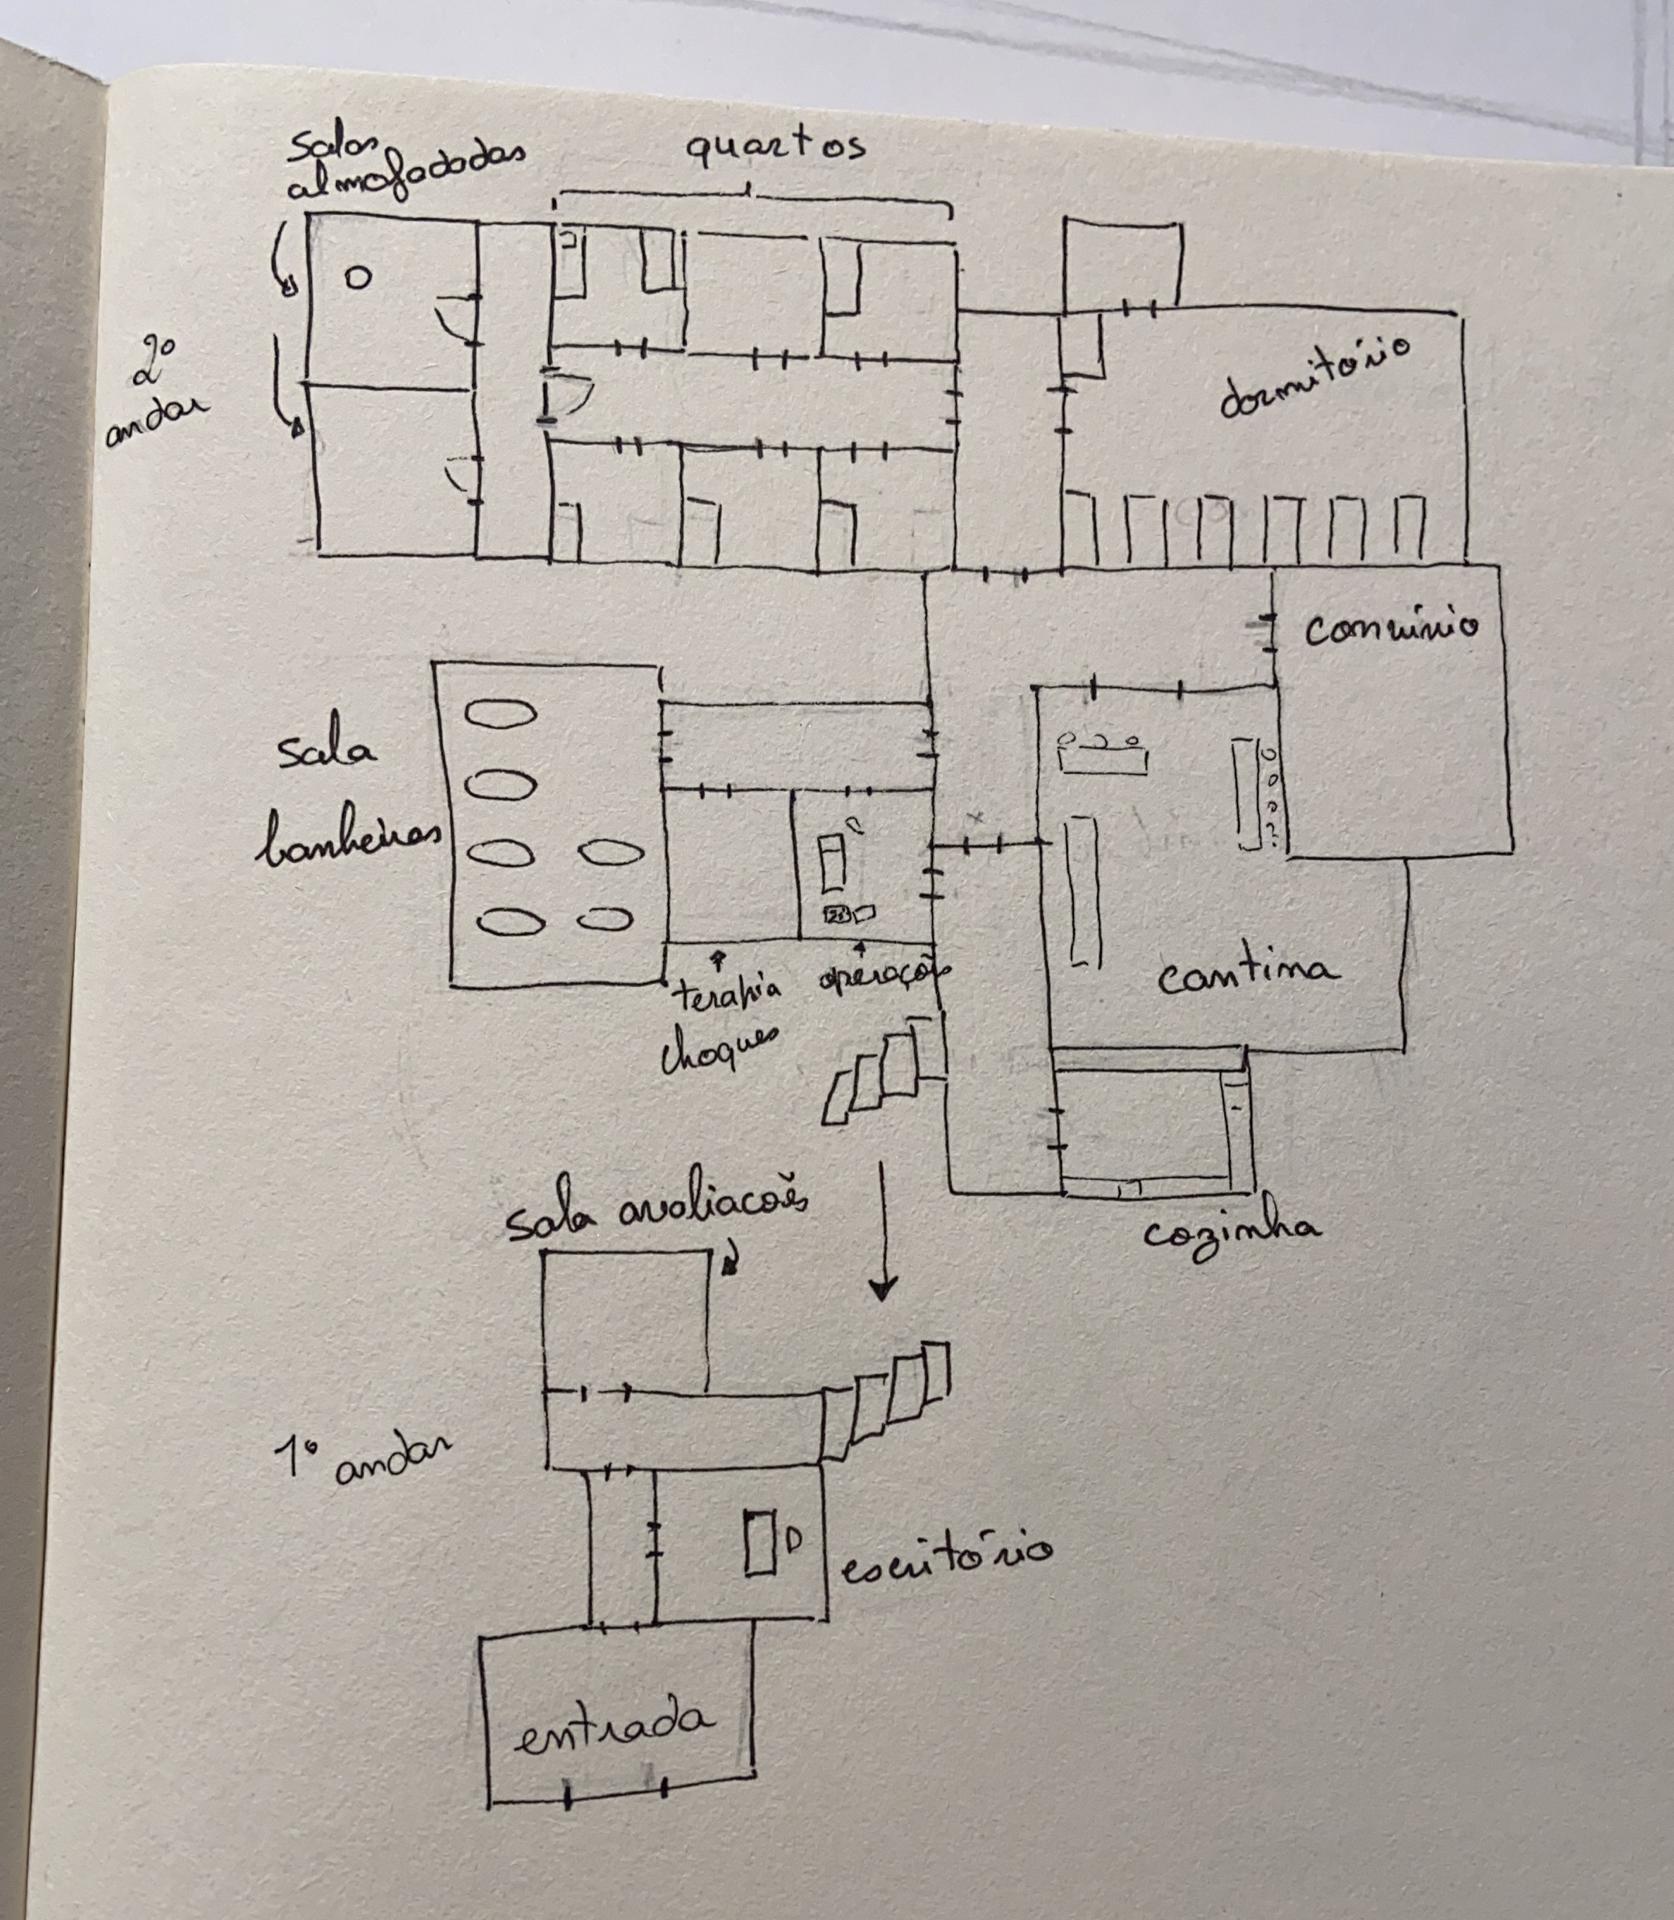 salas
almofadadas
quartos
2º
andar
dormitório
convívio
sala
banheiras
cantina
terapia
choques
operação
cozinha
sala avaliacoẽs
1º andar
escritório
entrada